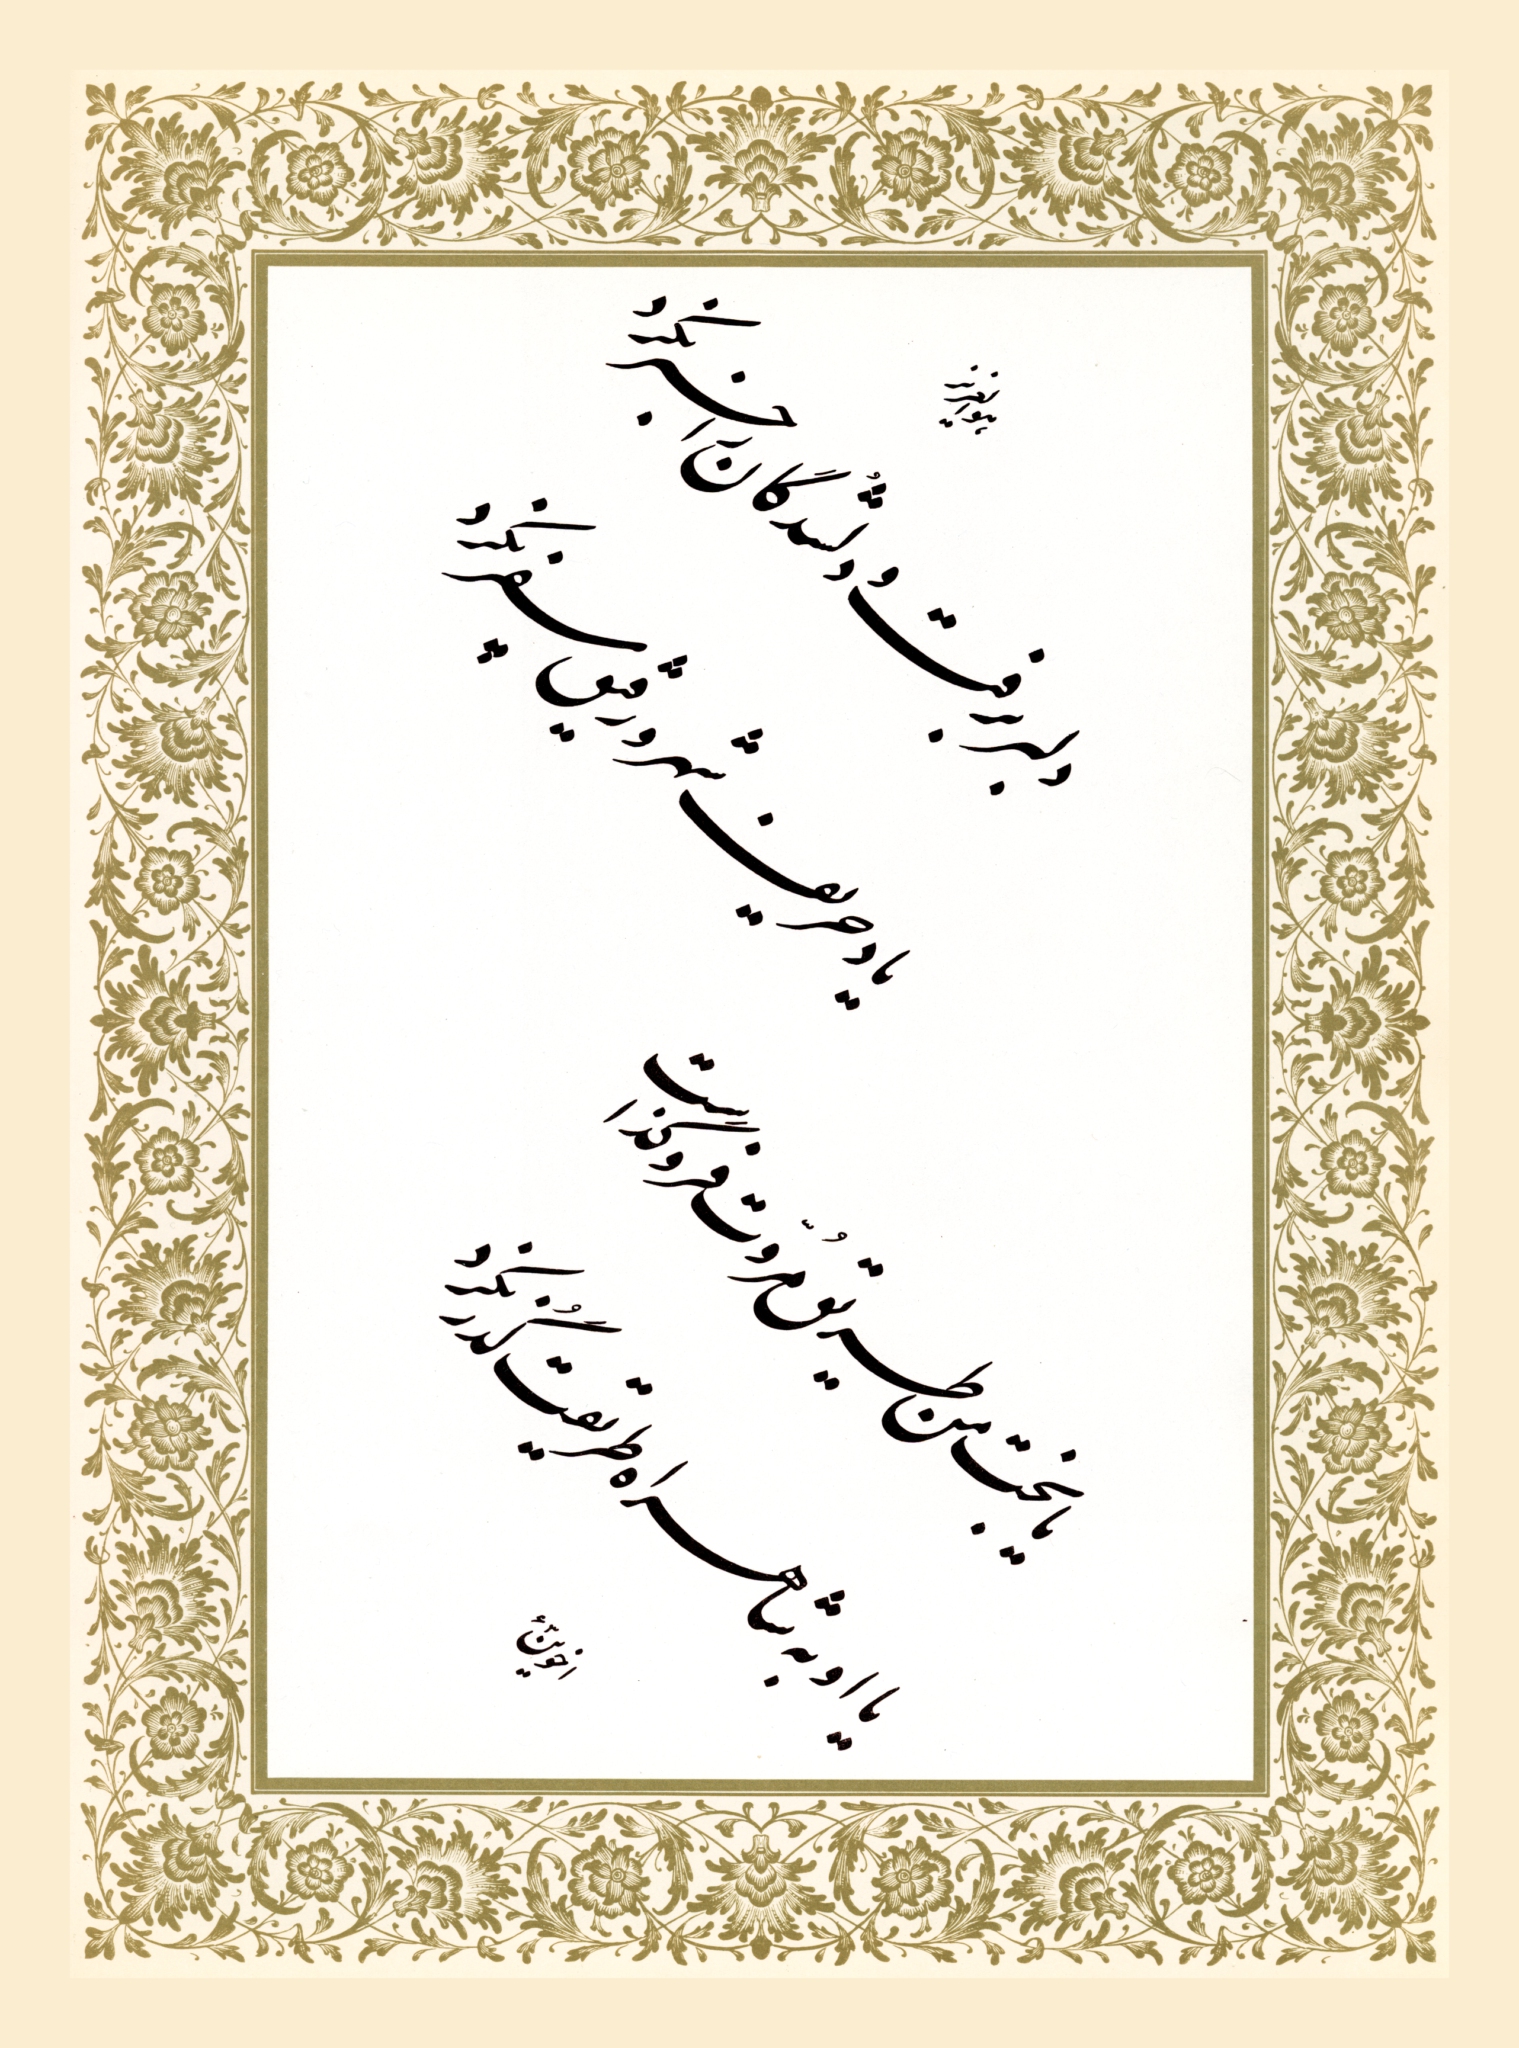 هوالعزیز
دلبر برفت و دلشُدگان را خبر نکرد
یاد حریف شهر و رفیق سفر نکرد
یا بخت من طریق مُروّت فروگذاشت
یا او به شاهراه طریقت گُذر نکرد